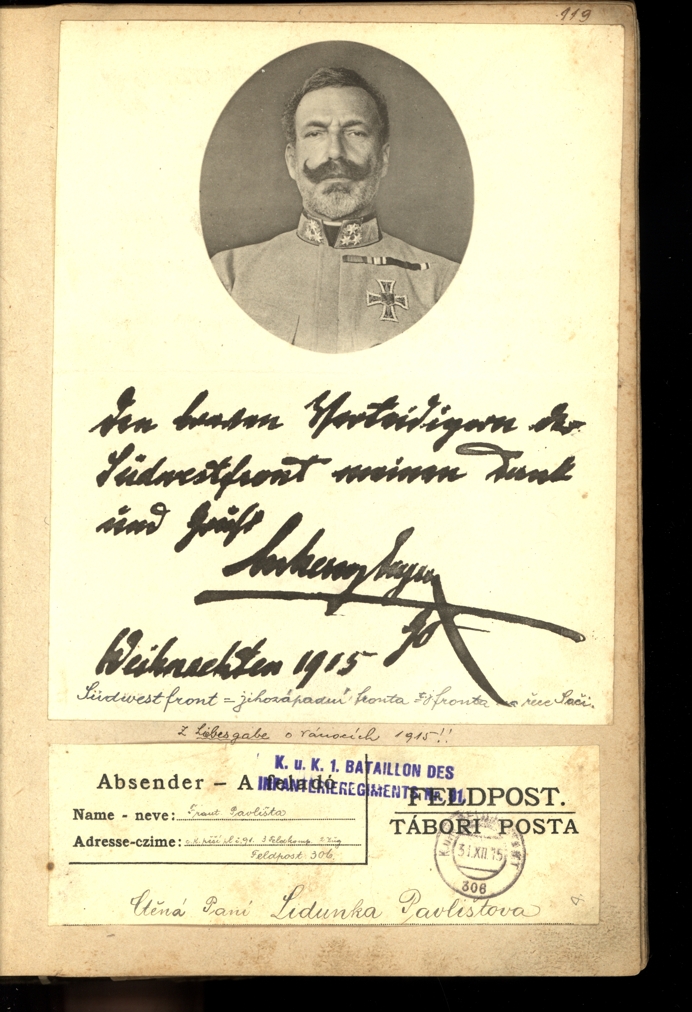 119
Den braven Verteidigern der
Südwestfront meinen Dank
und Gruß
Erzherzog Eugen
Weihnachten 1915
Südwestfront = jihozápadní fronta na řece Soči.
Z Liebesgabe o Vánocích 1915!!
K. u. K. 1. BATAILLON DES
INFANTERIEREGIMENTS Nr. 91
Absender – A feladó
Name - neve: Frant. Pavlišta
Adresse-czime: c. k. pěší pl. č. 91. 3 Feldkomp. 2 Zug
Feldpost 306.
FELDPOST.
TÁBORI POSTA
31.XII.15
306
Ctěná Paní Lidunka Pavlištova